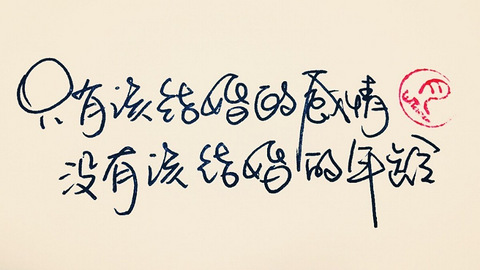 只有该结婚的感情
没有该结婚的年龄